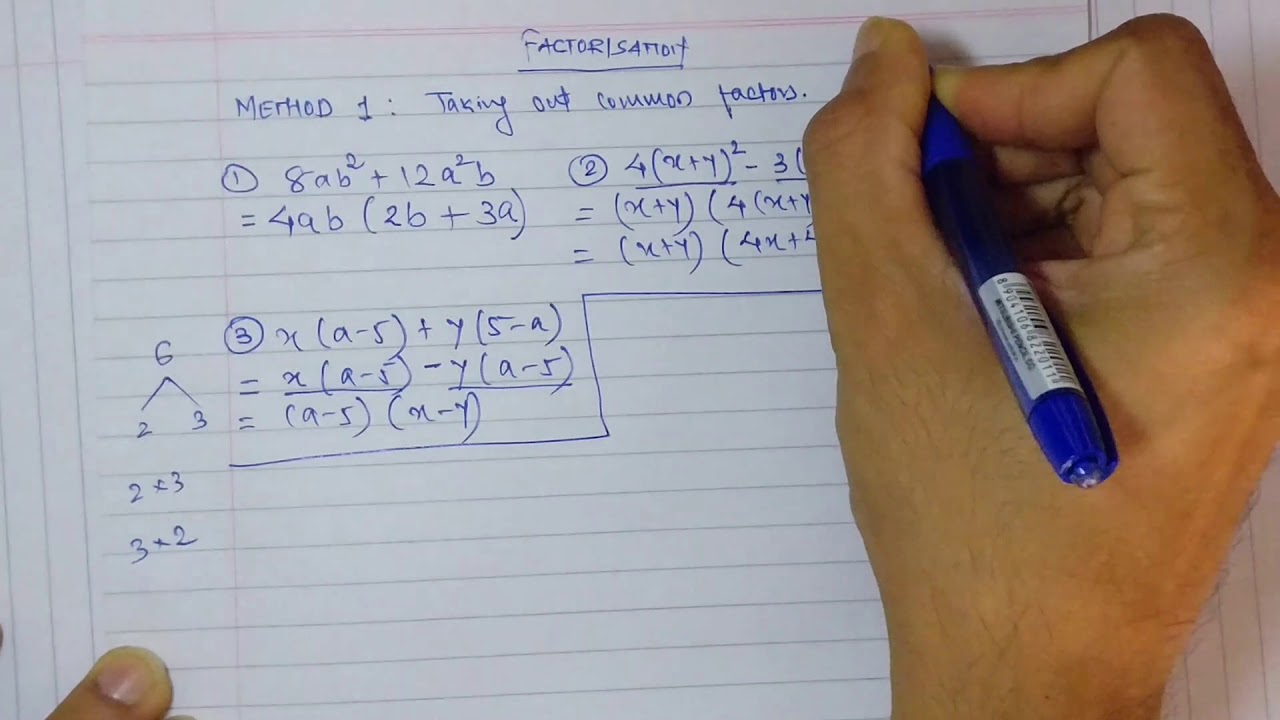 FACTORISATION
METHOD 1: Taking out common factors.
① 8ab² + 12a²b
= 4ab (2b + 3a)
② 4(x+y)² - 3(
= (x+y) (4(x+y
= (x+y) (4x+4
③ x(a-5) + y(5-a)
= x(a-5) - y(a-5)
= (a-5) (x-y)
6
2 3
2×3
3×2